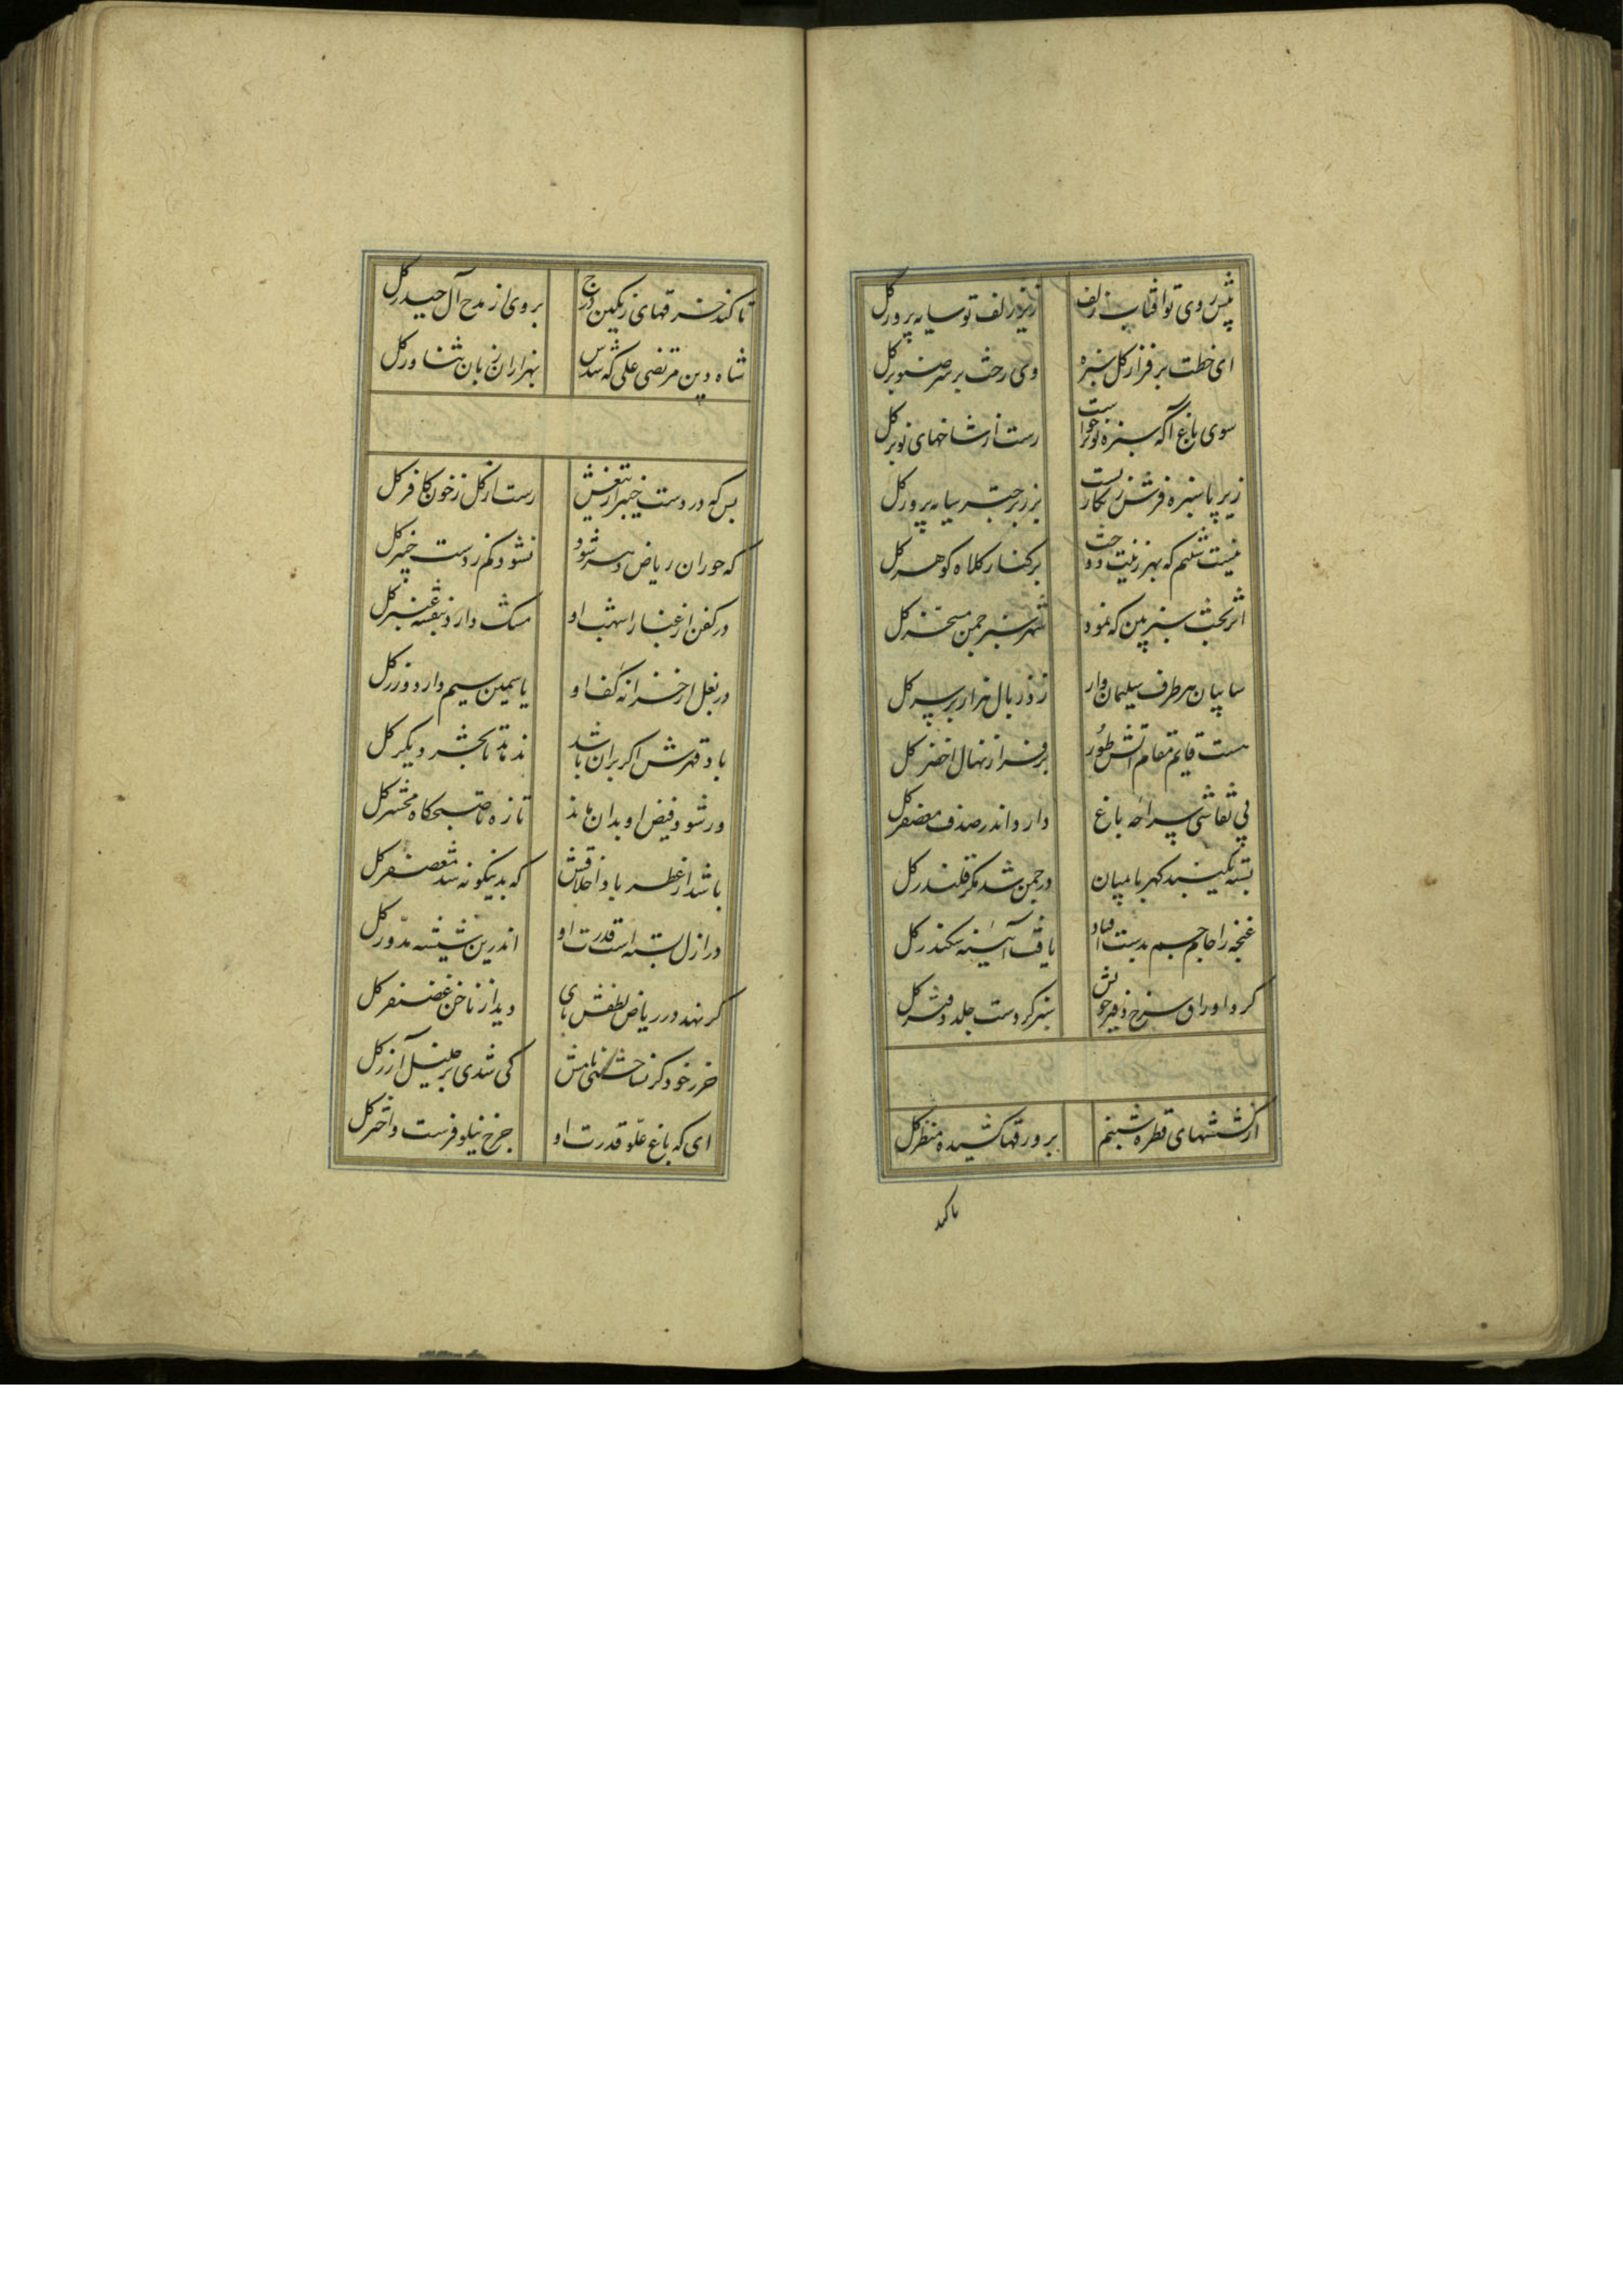 پیش روی تو آفتاب زلف زیور زلف تو سایه پرور گل
ای خطت بر فراز گل سبزه وی رخت بر سر صنوبر گل
سوی باغ آ که سبزه نوخواست رست از شاخهای نوبر گل
زیر پا سبزه فرش زنگاریست بر زبر چتر سایه پرور گل
نیست شبنم که بهر زینت دوخت بر کنار کلاه گوهر گل
اثر بخت سبز بین که نمود شهر سبز چمن مسخر گل
سایبان هر طرف سلیمان وار زد ز بال هزار بر سر گل
هست قایم مقام آتش طور بر فراز نهال اخضر گل
پی نقاشی سراچه باغ دارد اندر صدف معصفر گل
بسته یک بند کهربا میان در چمن شد مگر قلندر گل
غنچه را جام جم بدست افتاد یافت آئینه سکندر گل
کرد اوراق سرخ دفتر خویش سبز کردست جلد دفتر گل
از ششهای قطره شبنم بر ورقها کشیده منظر گل
تا کند
تا کند خرقهای رنگین درج بروی از مدح آل حیدر گل
شاه دین مرتضی علی که شدش بهزاران زبان ثناور گل
بس که در دست خیبر از تیغش رست از گل ز خون کافر گل
که حوران ریاض دسر شود نشود کم ز دست خیبر گل
در کفن از غبار اشهب او مشک دارد بنفشه عنبر گل
در بغل از خزانه کف او یاسمین سیم دارد و زر گل
باد قهرش اگر بران باشد ندماند تا بحشر دیگر گل
ور شود فیض او بدان ماند تازه تا صبحگاه محشر گل
باشد از عطر باد اخلاقش که بدینگونه شد معصفر گل
در ازل بسته است قدرت او اندرین شیشه مدور گل
گر نهد در ریاض لطفش پای دید از ناخن غضنفر گل
حرز خود گر نساختی نامش کی شدی بر خلیل آزر گل
ای که باغ علو قدرت او چرخ نیلوفرست و اختر گل